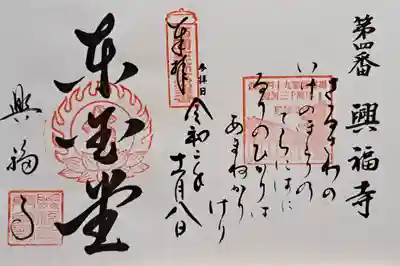 第四番 興福寺
さるさわの
いけのほとりの
てらにはに
るりのひかりは
あまねかり
けり
参拝日
令和二年十一月八日
奉拝
東金堂
興福寺